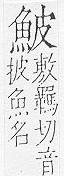 鮍
敷羈切音
披魚名